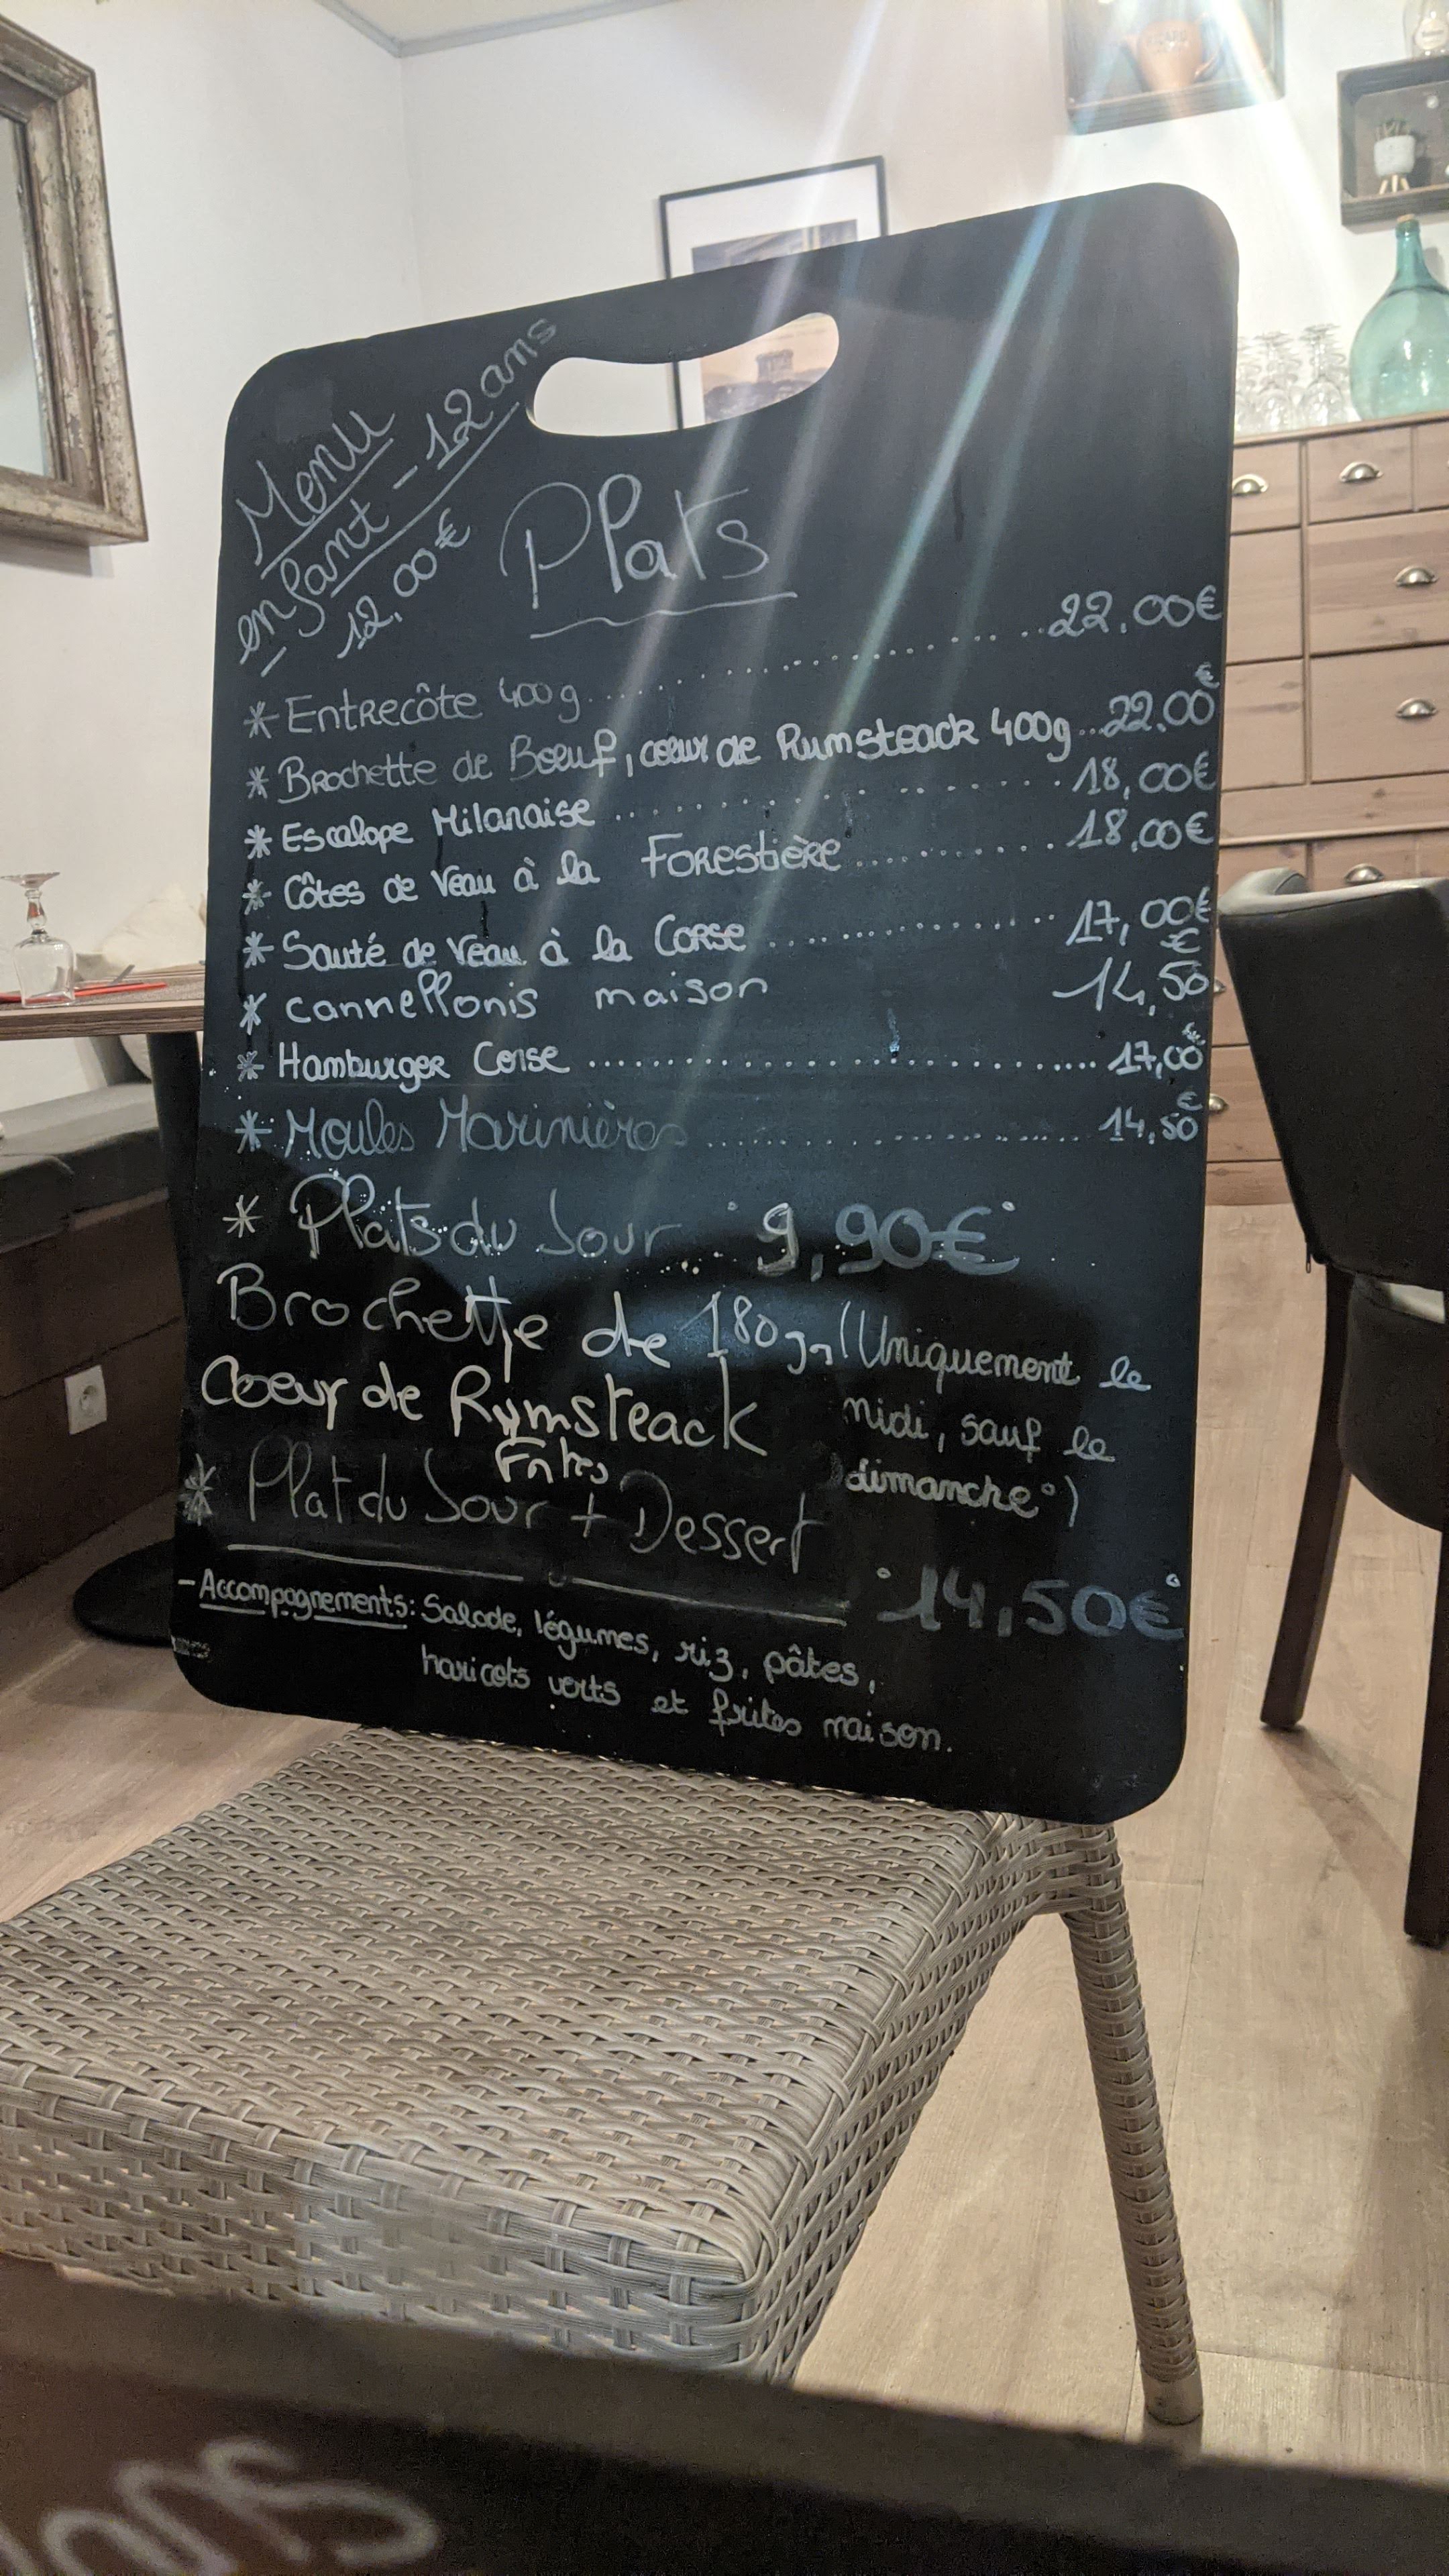 Menu
enfant - 12 ans
12,00€
Plats
* Entrecôte 400g ........ 22.00€
* Brochette de Boeuf, coeur de Rumsteack 400g ... 22.00€
* Escalope Milanaise ........ 18,00€
* Côtes de Veau à la Forestière ........ 18,00€
* Sauté de Veau à la Corse ........ 17,00€
* Cannellonis maison 14,50€
* Hamburger Corse ........ 17,00€
* Moules Marinières ........ 14,50€
* Plats du Jour : 9,90€
Brochette de 180g (Uniquement le
Coeur de Rumsteack midi, sauf le
Frites dimanche)
* Plat du Jour + Dessert
14,50€
- Accompagnements: Salade, légumes, riz, pâtes,
haricots verts et frites maison.